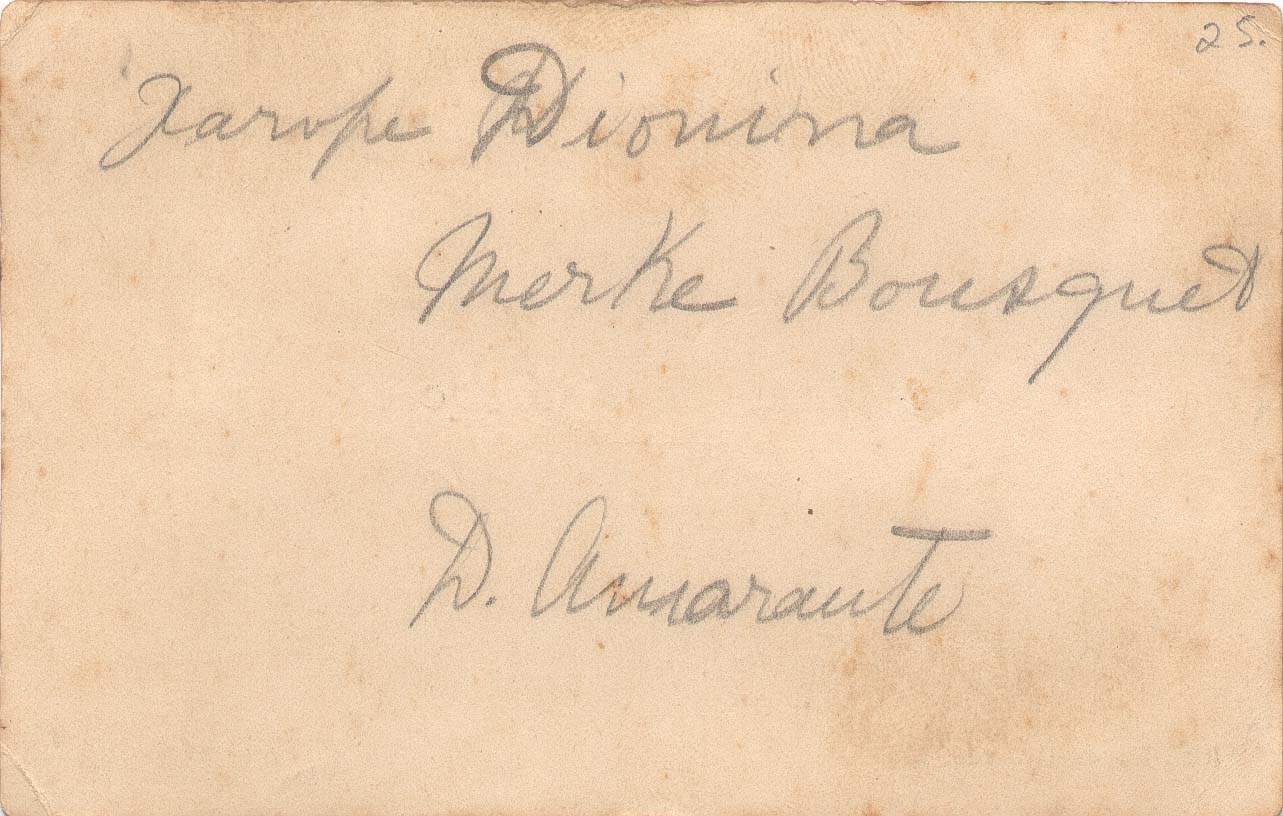 25.
Xarope Dionina
Merke Bousquet
D. Amarante